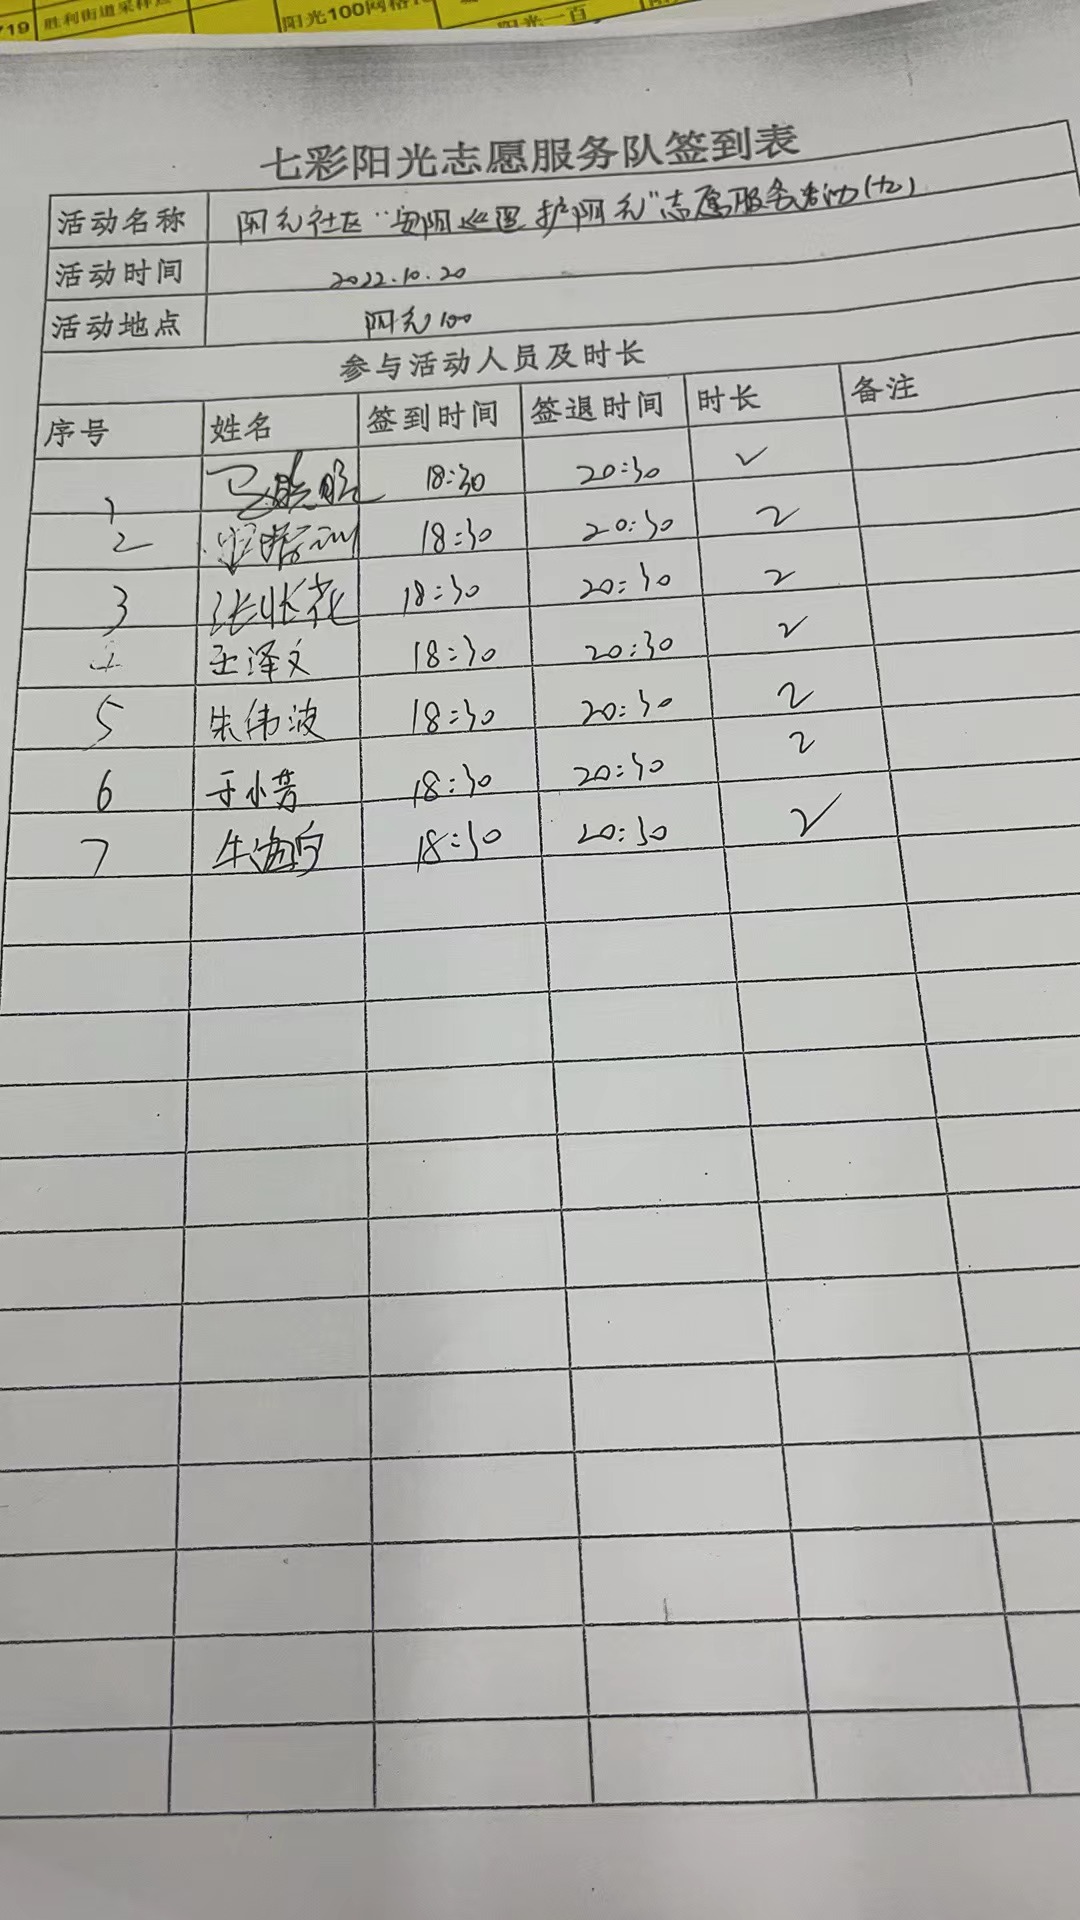 719 胜利街道采样点
阳光100网格
阳光一百
七彩阳光志愿服务队签到表
活动名称 阳光社区“安阳巡逻 护阳光”志愿服务活动(十2)
活动时间 2022.10.20
活动地点 阳光100
参与活动人员及时长
序号 姓名 签到时间 签退时间 时长 备注
1 18:30 20:30 2
2 18:30 20:30 2
3 张收花 18:30 20:30 2
4 王泽文 18:30 20:30 2
5 朱伟波 18:30 20:30 2
6 于小芳 18:30 20:30 2
7 牛 18:30 20:30 2